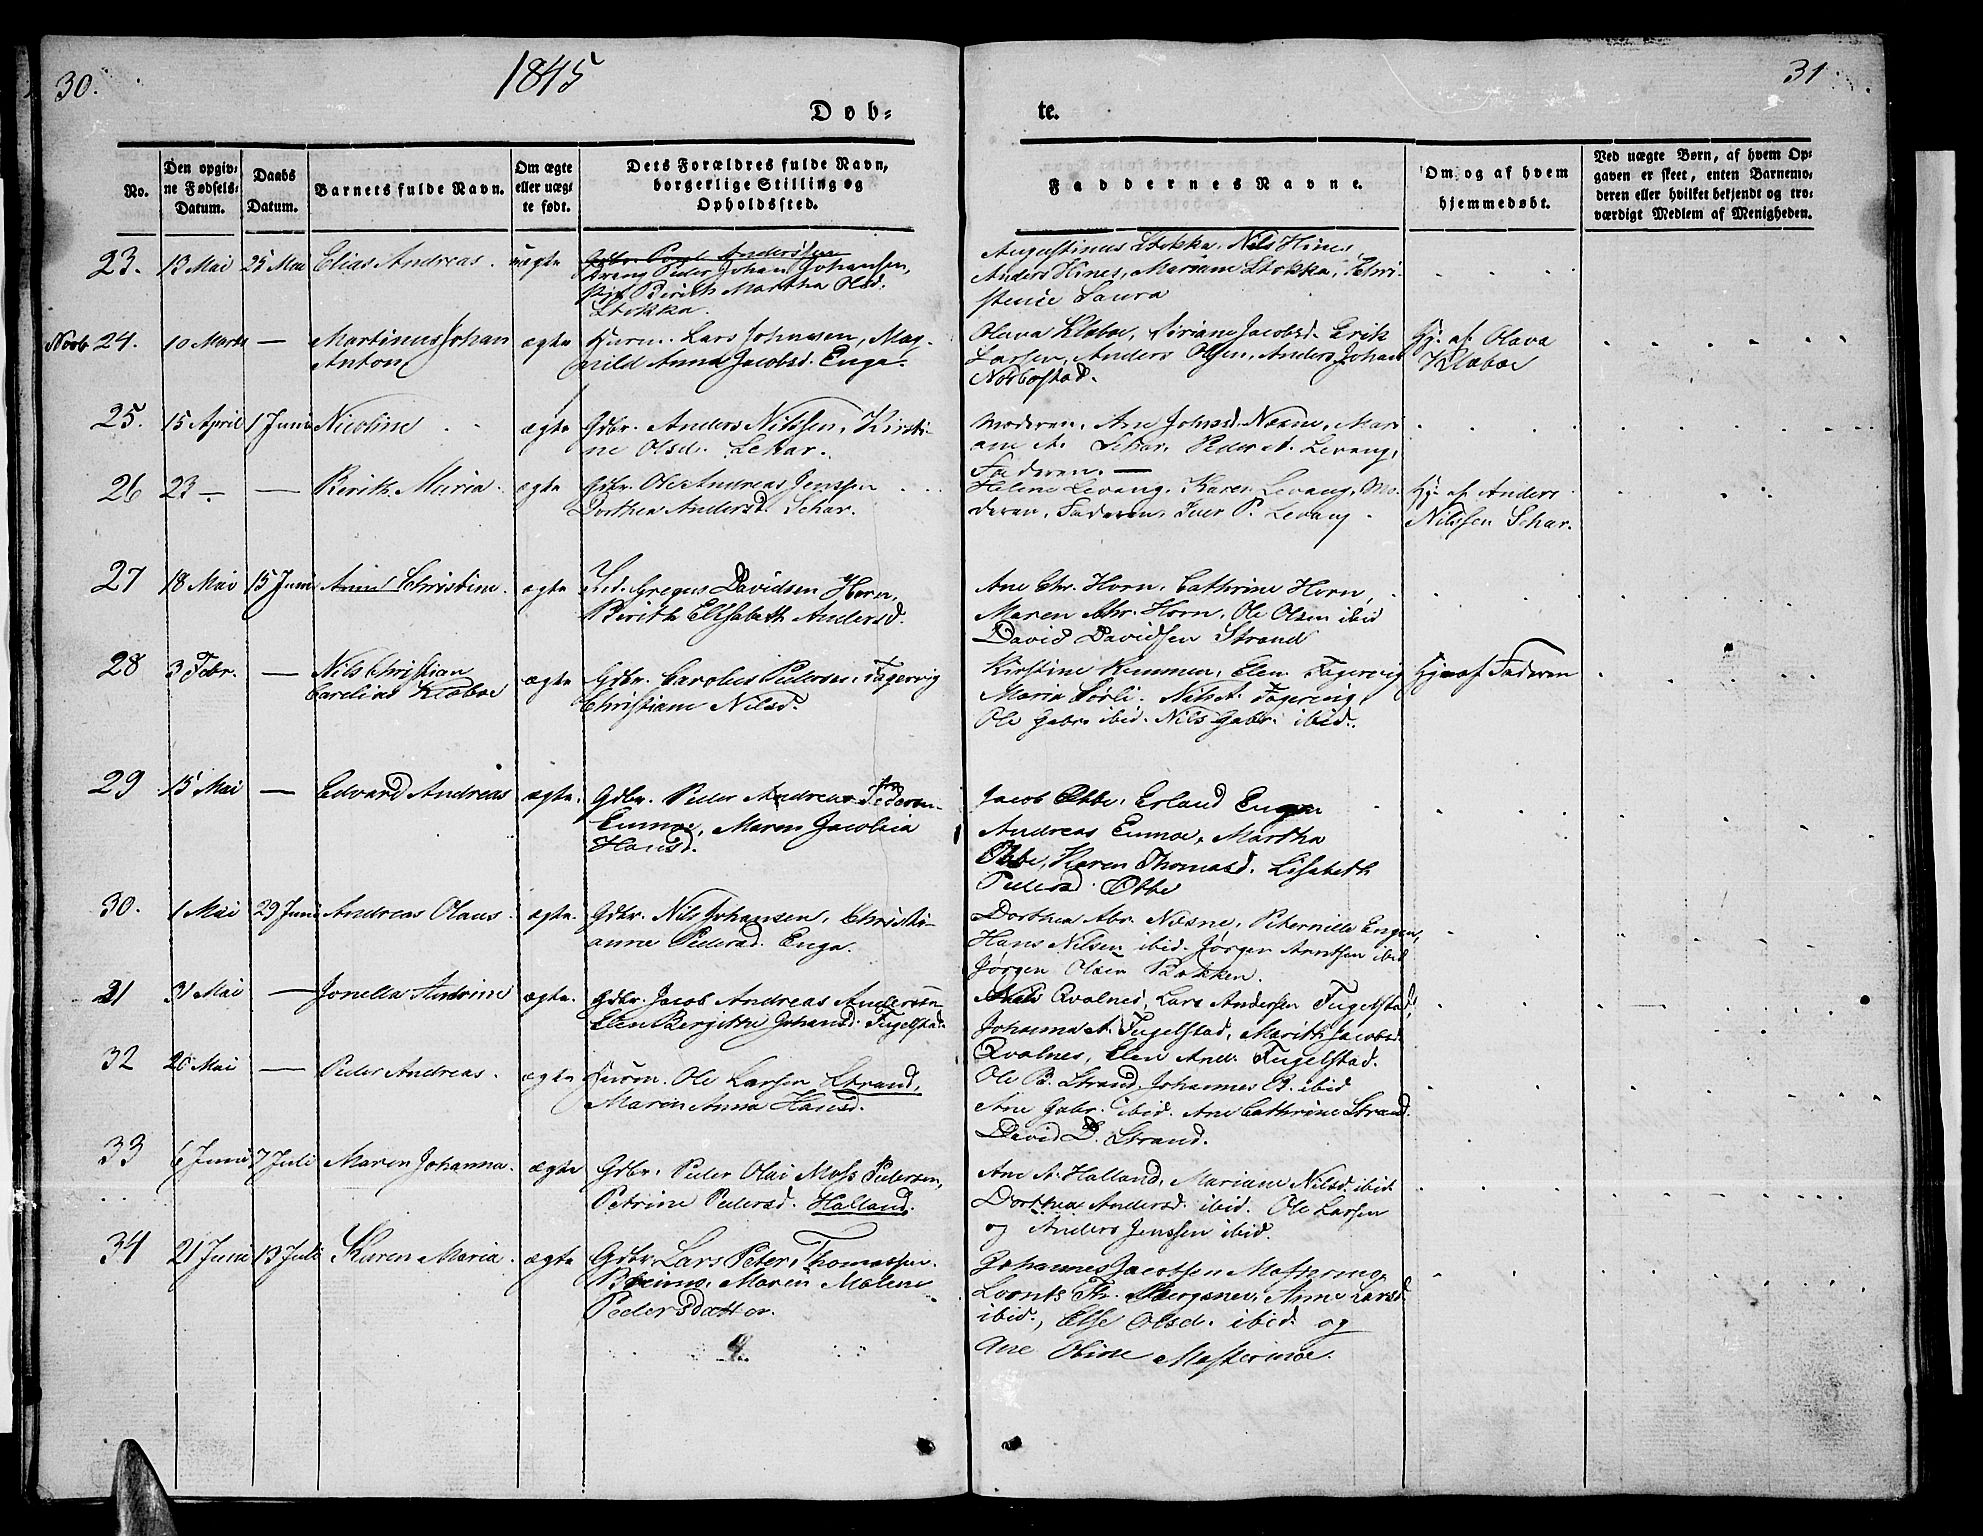 30.
1845
31
Døb-
te.
No.
Den opgiv-
ne Fødsels-
Datum.
Daabs
Datum.
Barnets fulde Navn.
Om ægte
eller uæg-
te født.
Dets Forældres fulde Navn,
borgerlige Stilling og
Opholdssted.
Faddernes Navne.
Om og af hvem
hjemmedøbt.
Ved uægte Børn, af hvem Op-
gaven er skeet, enten Barnemo-
deren eller hvilket bekjendt og tro-
værdigt Medlem af Menigheden.
23. 13 Mai 25 Mai Elias Andreas. uægte
Andersen
Dreng Peder Johan Johansen,
Pig. Birith Martha Olsd.
Stokka.
Augustinus Stokka, Nils Hines,
Anders Hines, Mariane Stokka, Chri-
stence Laura
24. 10 Marts — Martinus Johan
Anton
ægte
Huusm. Lars Johnsen, Mag-
nild Anna Jacobsd. Enge.
Olava Klæboe, Siriane Jacobsd. Erik
Larsen, Anders Olsen, Anders Johan
Norbostad.
Hj. af Olava
Klæboe
25. 15 April 1 Juni Nicoline ægte
Gdbr. Anders Nilssen, Kirsti-
ne Olsd. Schar.
Moderen, Ane Johnsd. Næsne, Mari-
ane A. Schar, Peder A. Levang,
Faderen. —
26 23 — — Birith Maria. ægte
Gdbr. Ole Andreas Jenssen
Dorthea Andersd. Schar.
Helene Levang, Karen Levang, Mo-
deren, Faderen, Iver P. Levang.
Hj. af Anders
Nilssen Schar.
27 18 Mai 15 Juni Anne Christine. ægte
Ind. Gregus Davidsen Horn,
Birith Elisabeth Andersd.
Ane Chr. Horn, Cathrine Horn,
Maren Chr. Horn, Ole Olsen ibid
David Davidsen Strand
28 3 Febr. — Nils Christian
Carelius Klæboe
ægte
Gdbr. Carolus Pedersen Fagervig
Christiane Nilsd.
Kirstine Remmen, Elen Fagervig
Maria Sørli, Nils A. Fagervig,
Ole Gabr. ibid. Nils Gabr. ibid.
Hj. af Faderen
29 15 Mai — Edvard Andreas ægte.
Gdbr. Peder Andreas Pedersen
Enmoe, Maren Jacobina
Hansd.
Jacob Øbbe, Erland Engen
Andreas Enmoe, Martha
Øbbe, Karen Thomasd. Lisabeth
Pedersd. Øbbe
30. 1 Mai 29 Juni Andreas Olaus. ægte.
Gdbr. Nils Johansen, Christi-
anne Pedersd. Enge.
Dorthea Abr. Næsne, Peternille Engen,
Hans Nilsen ibid. Jørgen Arntsen ibid
Jørgen Olsen Bækken.
31 31 Mai — Jonella Andrine ægte.
Gdbr. Jacob Andreas Andersen
Elen Bergitte Johansd. Fugelstad.
Niels Qvalnes, Lars Andersen Fugelstad,
Johanna A. Fugelstad, Marith Jacobsd.
Qvalnes, Elen And. Fugelstad.
32 26 Mai — Peder Andreas. ægte
Huusm. Ole Larsen Strand,
Maren Anna Hansd.
Ole B. Strand, Johannes B. ibid
Ane Gabr. ibid. Ane Cathrine Strand.
David D. Strand.
33 6 Juni 7 Juli Maren Johanna. ægte
Gdbr. Peder Olai Moss Pedersen,
Petrine Pedersd. Halland.
Ane A. Halland, Mariane Nilsd. ibid
Dorthea Andersd. ibid. Ole Larsen
og Anders Jenssen ibid.
34 21 Juni 13 Juli Karen Maria. ægte
Gdbr. Lars Peter Thomassen
Maren Malene
Pedersdatter.
Johannes Jacobsen
Anne Larsd.
ibid., Else Olsd. ibid. og
Ane Oline